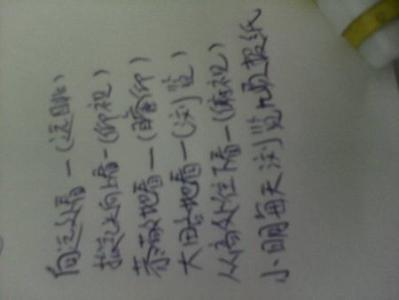 向远处看—(远眺)
抬头向上看—(仰视)
恭敬地看—(瞻仰)
大略地看—(浏览)
从高处往下看—(俯视)
小明每天浏览报纸